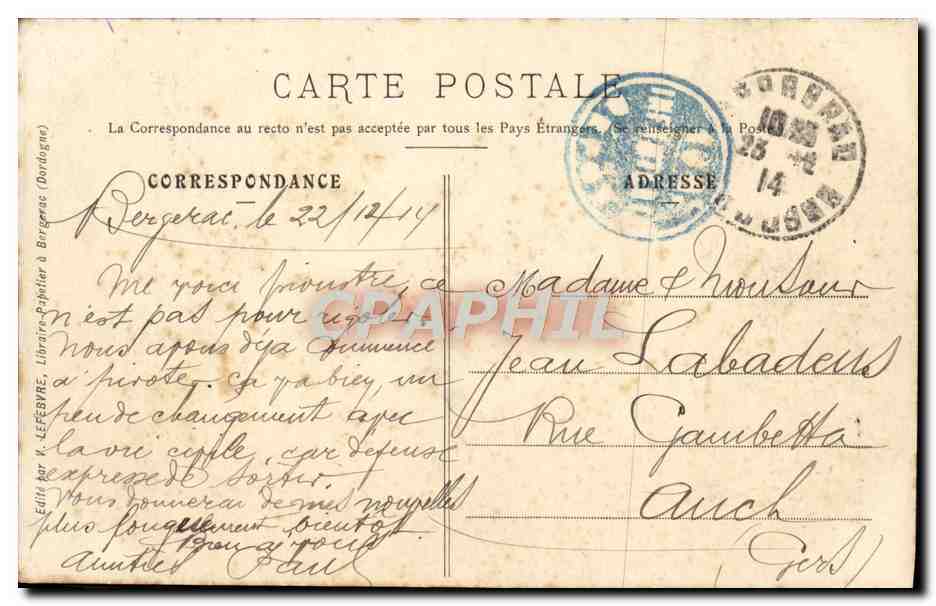 CARTE POSTALE
La Correspondance au recto n'est pas acceptée par tous les Pays Étrangers. (Se renseigner à la Poste)
CORRESPONDANCE
Bergerac, le 22/12/14
Me voici ce
n'est pas pour rigoler.
Nous avons deja
a pivoté. Ca va bien, un
peu de changement avec
la vie civile, car defense
expresse de sortir.
Vous donnerai de mes nouvelles
plus longuement bientot
Bien a vous
Paul
ADRESSE
Madame &
Jean Labadens
Rue Gambetta
Auch
(Gers)
23 - 12
14
Edité par V. LEFEBVRE, Libraire-Papetier à Bergerac (Dordogne)
CPAPHIL